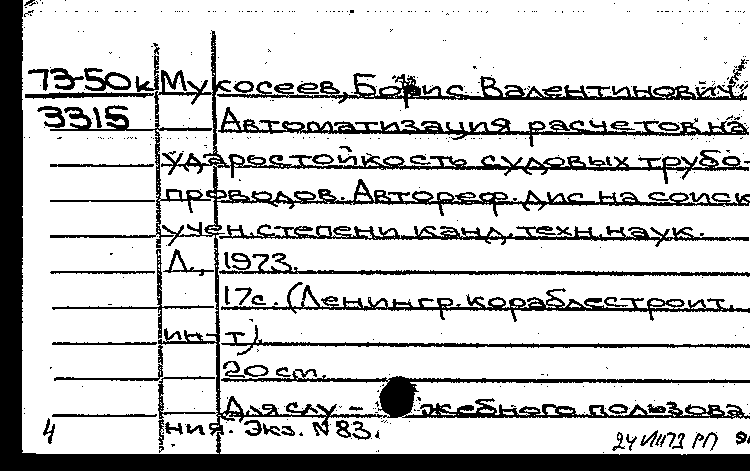 73-50к Мукосеев, Борис Валентинович.
3315 Автоматизация расчетов на
ударостойкость судовых трубо-
проводов. Автореф. дис на соиск
учен. степени канд. техн. наук.
Л., 1973.
17с. (Ленингр. кораблестроит.
ин-т).
20 см.
Для слу - жебного пользова
4 ния. Экз. N 83.